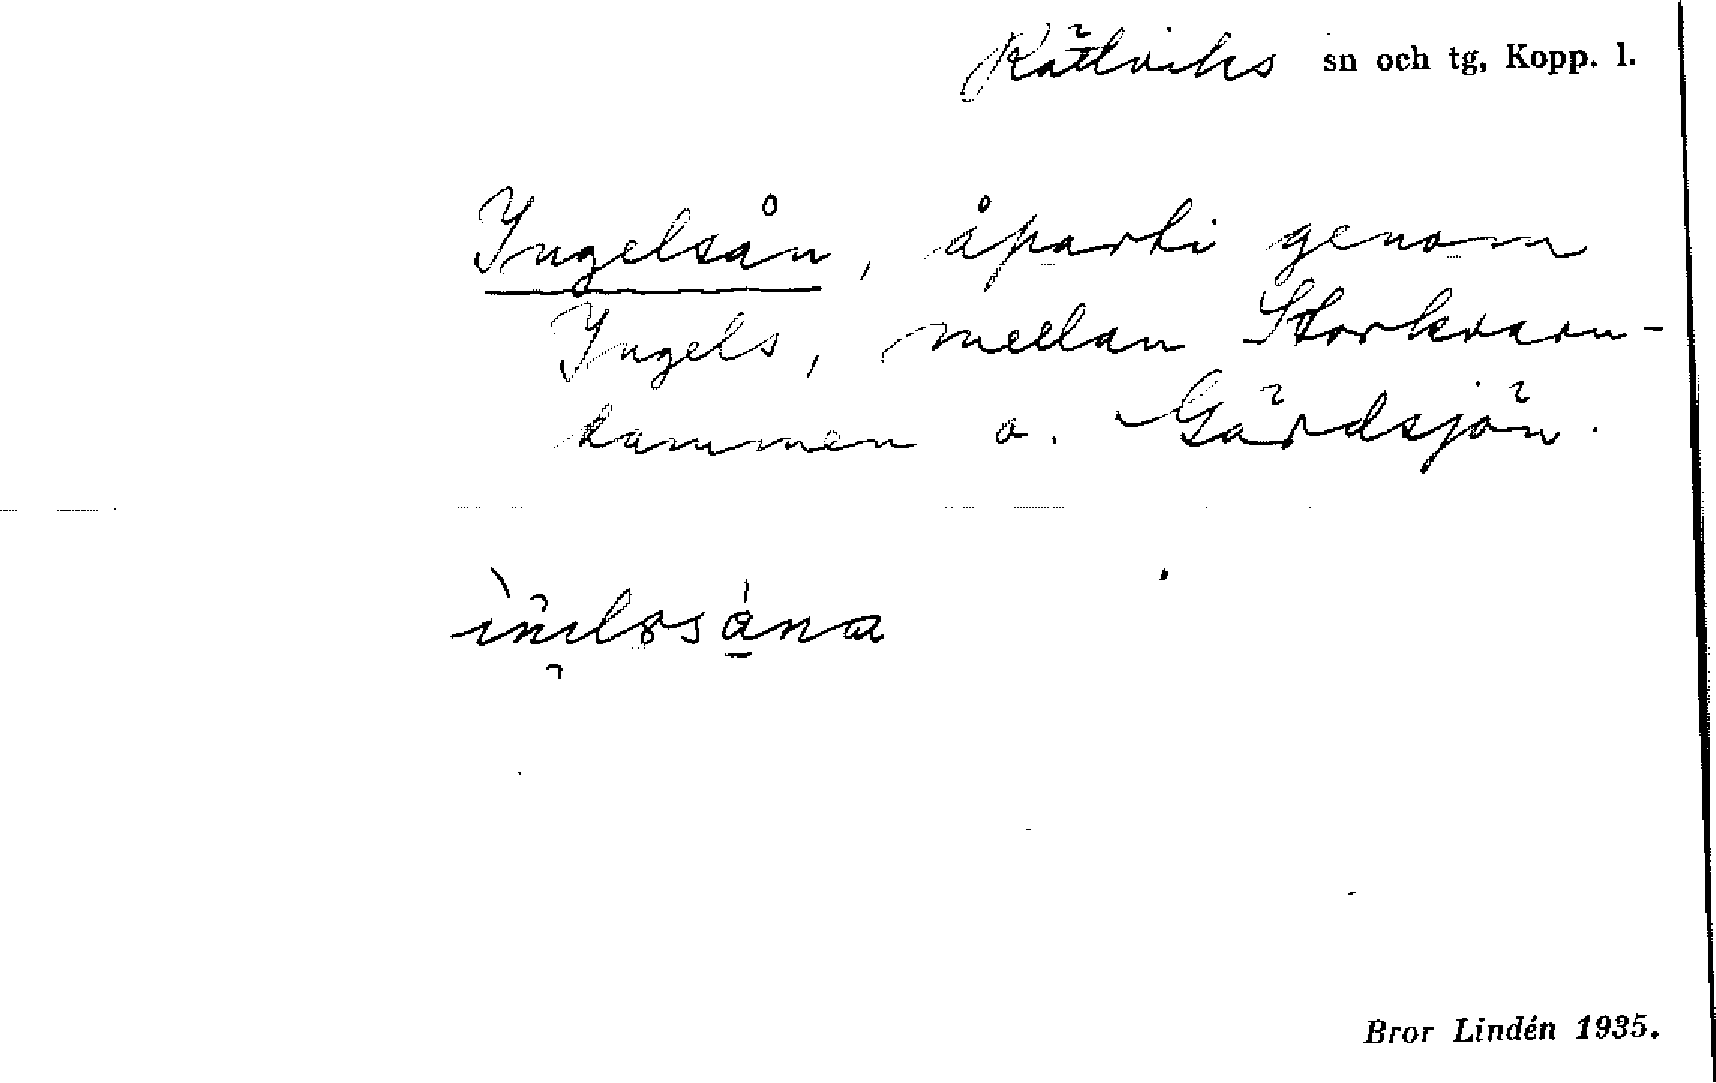 Rättviks sn och tg, Kopp. l.
Ingelsån, åparti genom
Ingels, mellan Storkvarn-
dammen o. Gärdsjön.
Bror Lindén 1935.